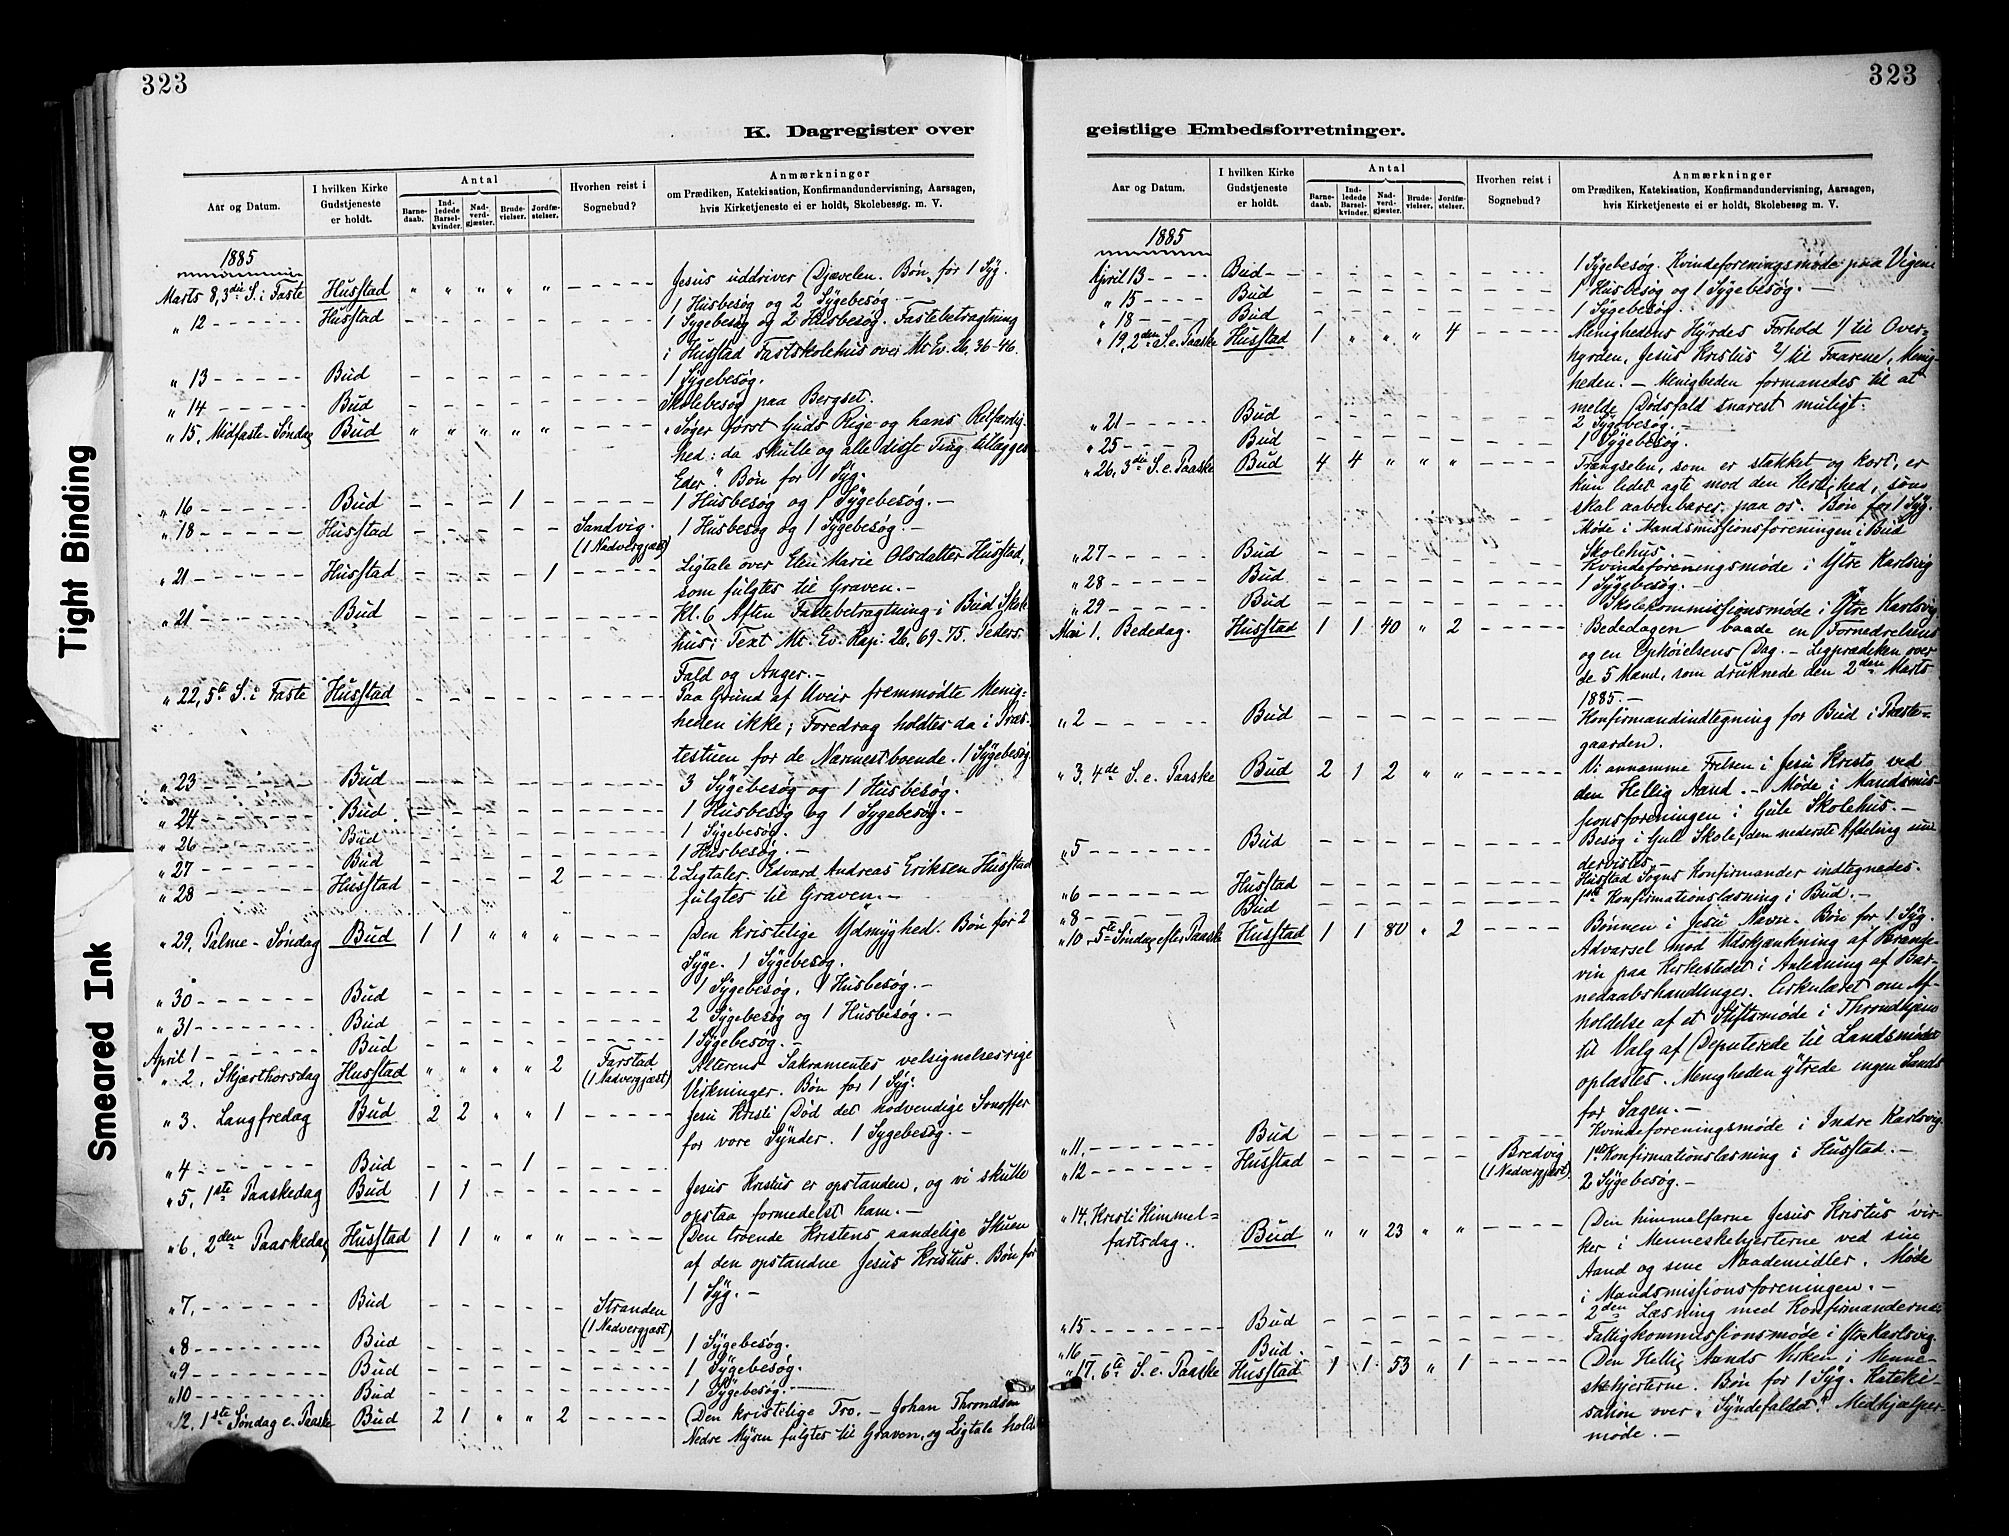 323
K. Dagregister over
Aar og Datum.
I hvilken Kirke
Gudstjeneste
er holdt.
Antal
Barne-
daab.
Ind-
ledede
Barsel-
kvinder.
Nad-
verd-
gjæster.
Brude-
vielser.
Jordfæ-
stelser.
Hvorhen reist i
Sognebud?
Anmærkninger
om Prædiken, Katekisation, Konfirmandundervisning, Aarsagen,
hvis Kirketjeneste ei er holdt, Skolebesøg m. V.
1885
Marts 8, 3die S. i Faste Husstad " " " " " Jesus uddriver Djævelen. Bøn for 1 Syg.
1 Husbesøg og 2 Sygebesøg. -
" 12 - - - - - Husstad - - - - - - - - - 1 Sygebesøg og 2 Husbesøg. Fastebetragtning
i Husstad Fastskolehus over Mt. Ev. 26, 36-46.
" 13 - - - - - Bud - - - - - - - - - 1 Sygebesøg.
" 14 - - - - - Bud - - - - - - - - - Skolebesøg paa Bergset.
" 15, Midfaste-Søndag Bud " " " " " - - - - "Søger først Guds Rige og hans Retfærdig-
hed: da skulle og alle disse Ting tillægges
Eder". Bøn for 1 Syg.
" 16 - - - - - Bud - - - 1 - - - - - 1 Husbesøg og 1 Sygebesøg. -
" 18 - - - - - Husstad - - - - - Sandvig. 1 Husbesøg og 1 Sygebesøg. -
(1 Nadvergjæst)
" 21 - - - - - Husstad - - - - 1 - - - - Ligtale over Elen Marie Olsdatter Husstad,
som fulgtes til Graven. -
" 21 - - - - - Bud - - - - - - - - - Kl. 6 Aften Fastebetragtning i Bud Skole
hus; Text Mt. Ev. Kap. 26, 69-75. Peders
Fald og Anger. -
" 22, 5te S. i Faste Husstad - - - - - - - - - Paa Grund af Uveir fremmødte Menig-
heden ikke; Foredrag holdtes da i Præs-
testuen for de Nærmestboende. 1 Sygebesøg.
" 23 - - - - - Bud - - - - - - - - - 3 Sygebesøg og 1 Husbesøg.
" 24 - - - - - Bud - - - - - - - - - 1 Husbesøg og 1 Sygebesøg. -
" 26 - - - - - Bud - - - - - - - - - 1 Sygebesøg.
" 27 - - - - - Bud - - - - - - - - - 1 Husbesøg. -
" 28 - - - - - Husstad - - - - 2 - - - - 2 Ligtaler. Edvard Andreas Eriksen Husstad
fulgtes til Graven. -
" 29, Palme-Søndag Bud 1 1 " " " Den kristelige Ydmyghed. Bøn for 2
Syge. 1 Sygebesøg.
" 30 - - - - - Bud - - - - - - - - - 1 Sygebesøg. 1 Husbesøg. -
" 31 - - - - - Bud - - - - - - - - - 2 Sygebesøg og 1 Husbesøg. -
April 1 - - - - - Bud - - - - - - - - - 1 Sygebesøg. -
" 2, Skjærthorsdag Husstad " " " " 2 Farstad Alterens Sakramentes velsignelsesrige
(1 Nadvergjæst) Virkninger. Bøn for 1 Syg.
" 3. Langfredag Bud 2 2 " " 1 - - - - Jesu Kristi Død det nødvendige Sonoffer
for vore Synder. 1 Sygebesøg. -
" 4 - - - - - Bud - - - 1 - - - - -
" 5, 1ste Paaskedag Bud 1 1 - - - - - - - Jesus Kristus er opstanden, og vi skulle
opstaa formedelst ham. -
" 6, 2den Paaskedag Husstad 1 1 " " " - - - - Den troende Kristens aandelige Skuen
af den opstandne Jesus Kristus. Bøn for
1 Syg. -
" 7, - - - - - Bud - - - - - Stranden
(1 Nadvergjæst)
" 8 - - - - - Bud - - - - - - - - - 1 Sygebesøg.
" 9 - - - - - Bud - - - - - - - - - 1 Sygebesøg.
" 10 - - - - - Bud - - - - - - - - - 1 Sygebesøg. -
" 12, 1ste Søndag e. Paaske Bud 2 1 " " 2 - - - - Den kristelige Tro. - Johan Throndsen
Nedre Myren fulgtes til Graven, og Ligtale holdt
323
geistlige Embedsforretninger.
Aar og Datum.
I hvilken Kirke
Gudstjeneste
er holdt.
Antal
Barne-
daab.
Ind-
ledede
Barsel-
kvinder.
Nad-
verd-
gjæster.
Brude-
vielser.
Jordfæ-
stelser.
Hvorhen reist i
Sognebud?
Anmærkninger
om Prædiken, Katekisation, Konfirmandundervisning, Aarsagen,
hvis Kirketjeneste ei er holdt, Skolebesøg m. V.
1885
April 13 - - - - Bud - - - - - - - - - 1 Sygebesøg. Kvindeforeningsmøde paa Vigene
" 15 - - - - Bud - - - - - - - - - 1 Husbesøg og 1 Sygebesøg. -
" 18 - - - - Bud - - - - - - - - - 1 Sygebesøg.
" 19, 2den S. e. Paaske Husstad 1 " " " 4 - - - - Menighedens Hyrdes Forhold 1/ til Over-
hyrden, Jesus Kristus 2/ til Faarene, Menig-
heden. - Menigheden formanedes til at
melde Dødsfald snarest muligt.
" 21 - - - - Bud - - - - - - - - - 2 Sygebesøg. -
" 25 - - - - Bud - - - - - - - - - 1 Sygebesøg.
" 26, 3die S. e. Paaske Bud 4 4 " " " - - - - Trængselen, som er stakket og kort, er
kun ledet agte mod den Herlighed, som
skal aabenbares paa os. Bøn for 1 Syg.
Møde i Mandsmissionsforeningen i Bud
Skolehus. -
" 27 - - - - Bud - - - - - - - - - Kvindeforeningsmøde i Ytre Karlsvig
" 28 - - - - Bud - - - - - - - - - 1 Sygebesøg. -
" 29 - - - - Bud - - - - - - - - - Skolekommissionsmøde i Ytre Karlsvig
Mai 1. Bededag. Husstad 1 1 40 " 2 - - - - Bededagen baade en Fornedrelsens
og en Ophøielsens Dag. - Ligprædiken over
de 5 Mænd, som druknede den 2den Marts
1885. -
" 2 - - - - Bud - - - - - - - - - Konfirmandindtegning for Bud i Præste-
gaarden.
" 3. 4de S. e. Paaske Bud 2 1 2 " " - - - - Vi annamme Frelsen i Jesu Kristo ved
den Hellig Aand. - Møde i Mandsmis-
sionsforeningen i Gule Skolehus. -
" 5 - - - - Bud - - - - - - - - - Besøg i Gule Skole, den nederste Afdeling un-
dervistes. -
" 6 - - - - Husstad - - - - - - - - - Husstad Sogns Konfirmander indtegnedes.
" 8 - - - - Bud - - - - - - - - - 1ste Konfirmationslæsning i Bud. -
" 10, 5te Søndag efter Paaske Husstad 1 1 80 " 2 - - - - Bønnen i Jesu Navn. Bøn for 1 Syg.
Advarsel mod Udskjænkning af Brænde-
vin paa Kirkestedet i Anledning af Bar-
nedaabshandlinger. Cirkulæret om Af-
holdelse af et Stiftsmøde i Throndhjem
til Valg af Deputerede til Landsmødet
oplæstes. Menigheden ytrede ingen Sands
for Sagen. -
" 11. - - - - Bud - - - - - - - - - Kvindeforeningsmøde i Indre Karlsvig.
" 12 - - - - Husstad - - - - - Bredvig 1ste Konfirmationslæsning i Husstad. -
(1 Nadvergjæst). 2 Sygebesøg. -
" 14. Kristi Himmel=
fartsdag. Bud " " 23 " " - - - - Den himmelfarne Jesus Kristus vir-
ker i Menneskehjerterne ved sin
Aand og sine Naademidler. Møde
i Mandsmissionsforeningen. -
" 15 - - - - Bud - - - - - - - - - 2den Læsning med Konfirmanderne.
" 16 - - - - Bud. - - - - - - - - - Fattigkommissionsmøde i Ytre Karlsvig.
" 17. 6te S. e. Paaske Husstad 1 1 53 " 1 - - - - Den Hellig Aands Virken i Menne-
skehjerterne. Bøn for 1 Syg. Kateki-
sation over "Syndefaldet". Medhjælper-
møde. -
Tight Binding
Smeared Ink